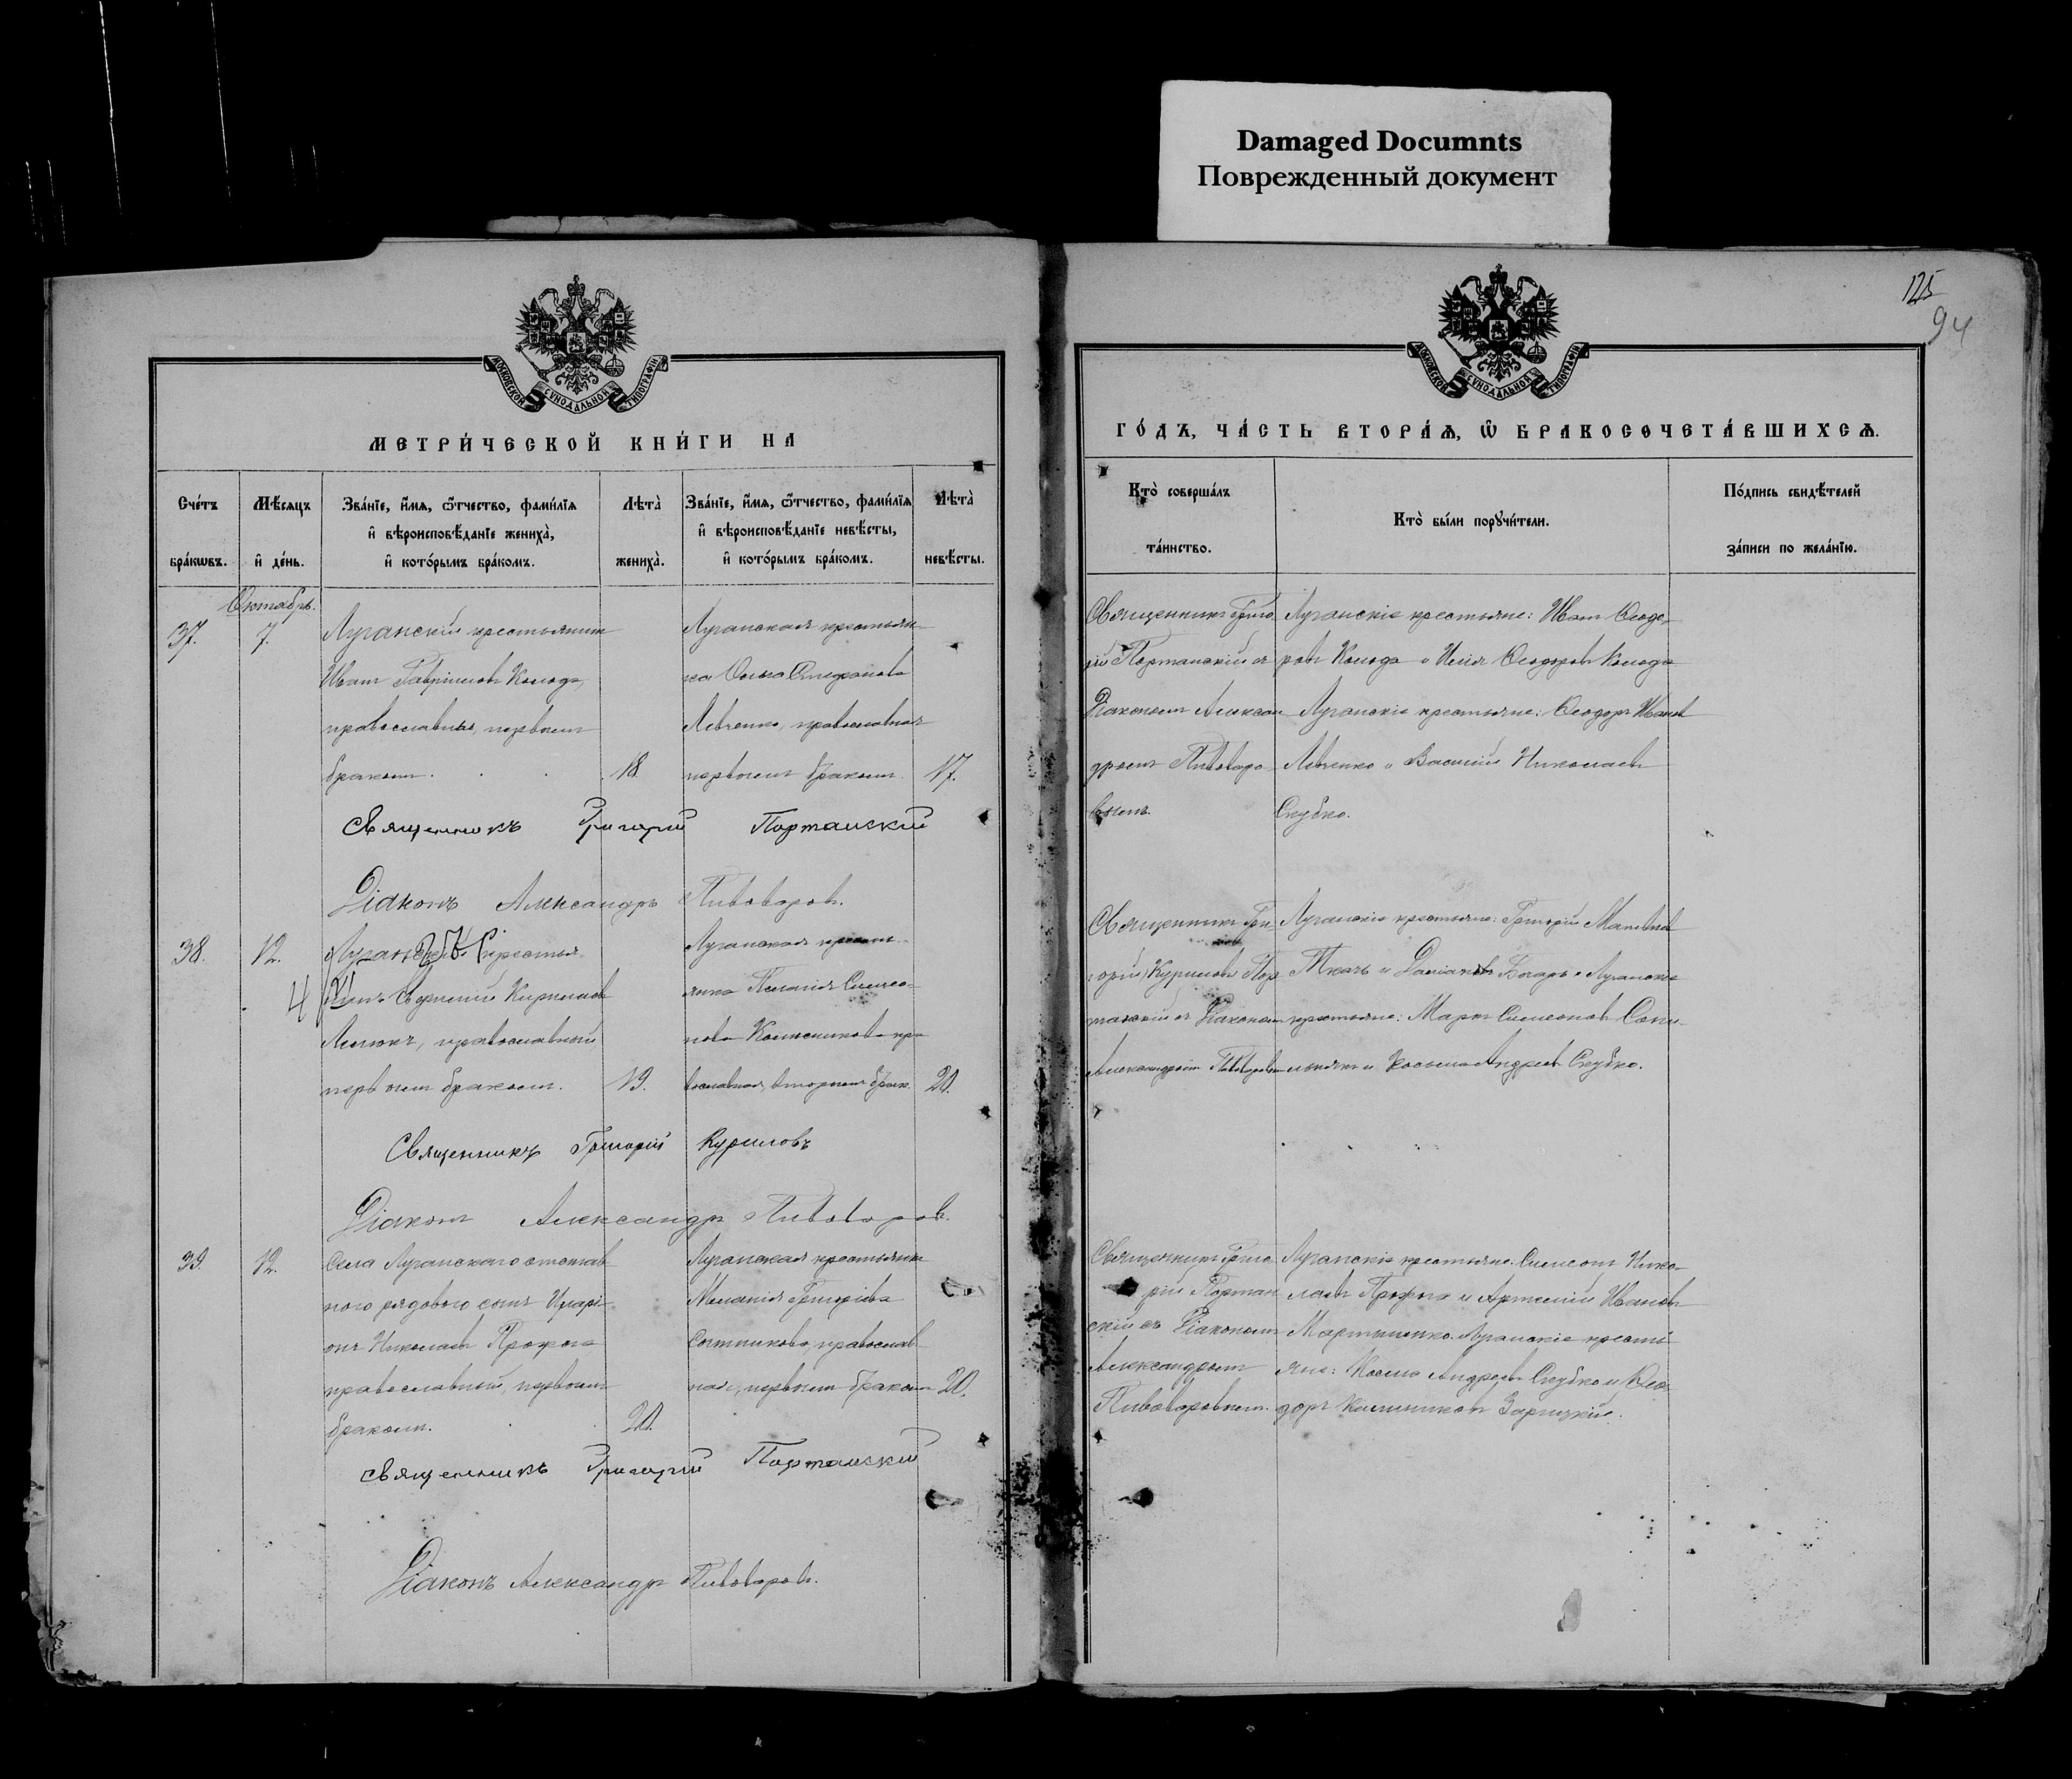 Damaged Documnts
Поврежденный документ
125
94
МОСКОВСКОЙ СѴНОДАЛЬНОЙ ТИПОГРАФІИ
МОСКОВСКОЙ СѴНОДАЛЬНОЙ ТИПОГРАФІИ
МЕТРИ́ЧЕСКОЙ КНИ́ГИ НА
ГО́ДЪ, ЧА́СТЬ ВТОРА́Ѧ, Ѡ҆ БРАКОСОЧЕТА́ВШИХСѦ.
Сче́тъ бра́кѡвъ.
Мѣ́сѧцъ и҆ де́нь.
Зва́нїе, и҆́мѧ, ѻ҆́тчество, фами́лїѧ
и҆ вѣроисповѣ́данїе жениха̀,
и҆ кото́рымъ бра́комъ.
Лѣта̀ жениха̀.
Зва́нїе, и҆́мѧ, ѻ҆́тчество, фами́лїѧ
и҆ вѣроисповѣ́данїе невѣ́сты,
и҆ кото́рымъ бра́комъ.
Лѣта̀ невѣ́сты.
Кто̀ соверша́лъ
та́инство.
Кто̀ бы́ли порꙋчи́тели.
По́дпись свидѣ́телей
за́писи по жела́нїю.
Октябрь.
37.
7.
Луганскій крестьянинъ
Иванъ Гавріиловъ Колода,
православный, первымъ
бракомъ.
18.
Луганская крестьян-
ка Ольга Стефанова
Левченко, православная
первымъ бракомъ.
17.
Священникъ Григо
рій Портанскій съ
Діакономъ Алексан
дромъ Пивоваро-
вымъ.
Луганскіе крестьяне: Иванъ Ѳеодо-
ровъ Колода и Илія Ѳеодоровъ Колода
Луганскіе крестьяне: Ѳеодоръ Ивановъ
Левченко и Василій Николаевъ
Скубко.
Священникъ Григорій Портанскій
Діаконъ Александръ Пивоваровъ.
38.
12.
Луганскій крестья-
нинъ Кириловъ
православный
первымъ бракомъ.
19.
Луганская крестья-
янка Пелагія Симео-
нова Колесникова пра
вославная, вторымъ брак.
20.
Священникъ Гри
горій Куриловъ Пор
танскій съ Діакономъ
Александромъ Пивоваровым
Луганскіе крестьяне: Григорій Матвѣевъ
Ткачъ и Луганскіе
крестьяне: Маркъ Симеоновъ
и Косьма Андреевъ Скубко.
Священникъ Григорій Куриловъ
Діаконъ Александръ Пивоваровъ.
39.
12.
Села Луганскаго отстав-
ного рядового сынъ Иларі-
онъ Николаевъ Профоса
православный, первымъ
бракомъ.
20.
Луганская крестьянка
Меланія Григоріева
Сотникова, православ-
ная, первымъ бракомъ
20.
Священникъ Григо
рій Портан
скій съ Діакономъ
Александромъ
Пивоваровымъ.
Луганскіе крестьяне: Симеонъ Нико-
лаевъ Профоса и Артемій Ивановъ
Мартыненко. Луганскіе кресть
яне: Косьма Андреевъ Скубко и Ѳео-
доръ Калиниковъ Зарицкій.
Священникъ Григорій Портанскій
Діаконъ Александръ Пивоваровъ.